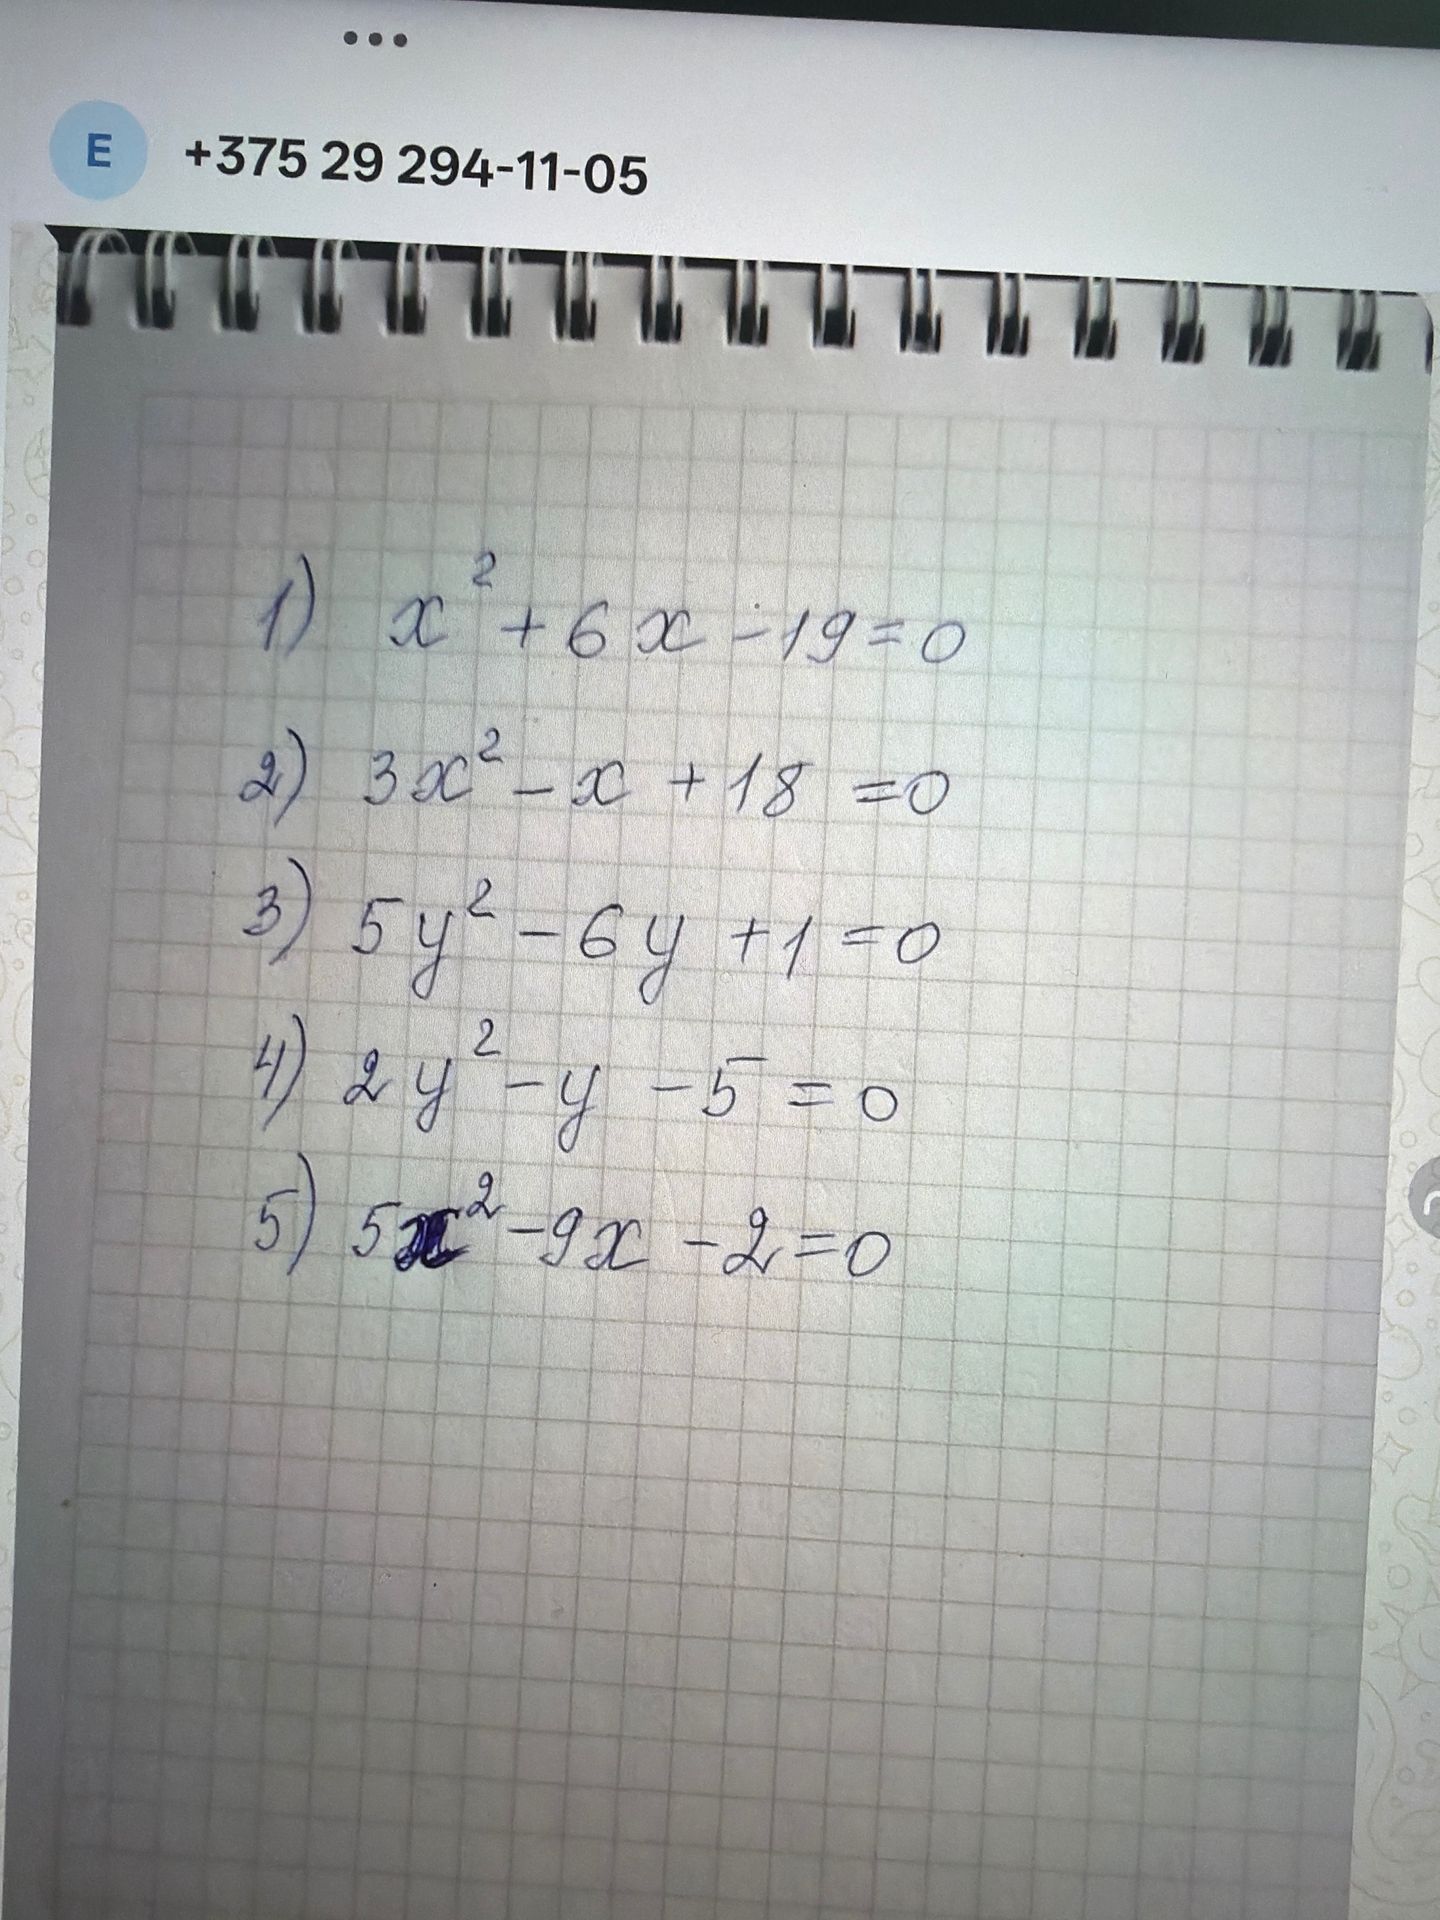 E +375 29 294-11-05
1) x² + 6x - 19 = 0
2) 3x² - x + 18 = 0
3) 5y² - 6y + 1 = 0
4) 2y² - y - 5 = 0
5) 5x² - 9x - 2 = 0